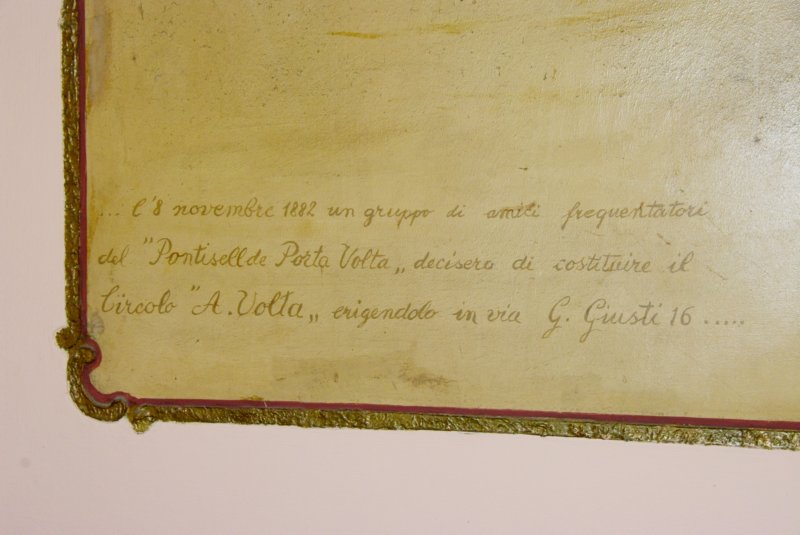 ... l'8 novembre 1882 un gruppo di amici frequentatori
del "Pontisell de Porta Volta„ decisero di costituire il
Circolo "A. Volta„ erigendolo in via G. Giusti 16 .....